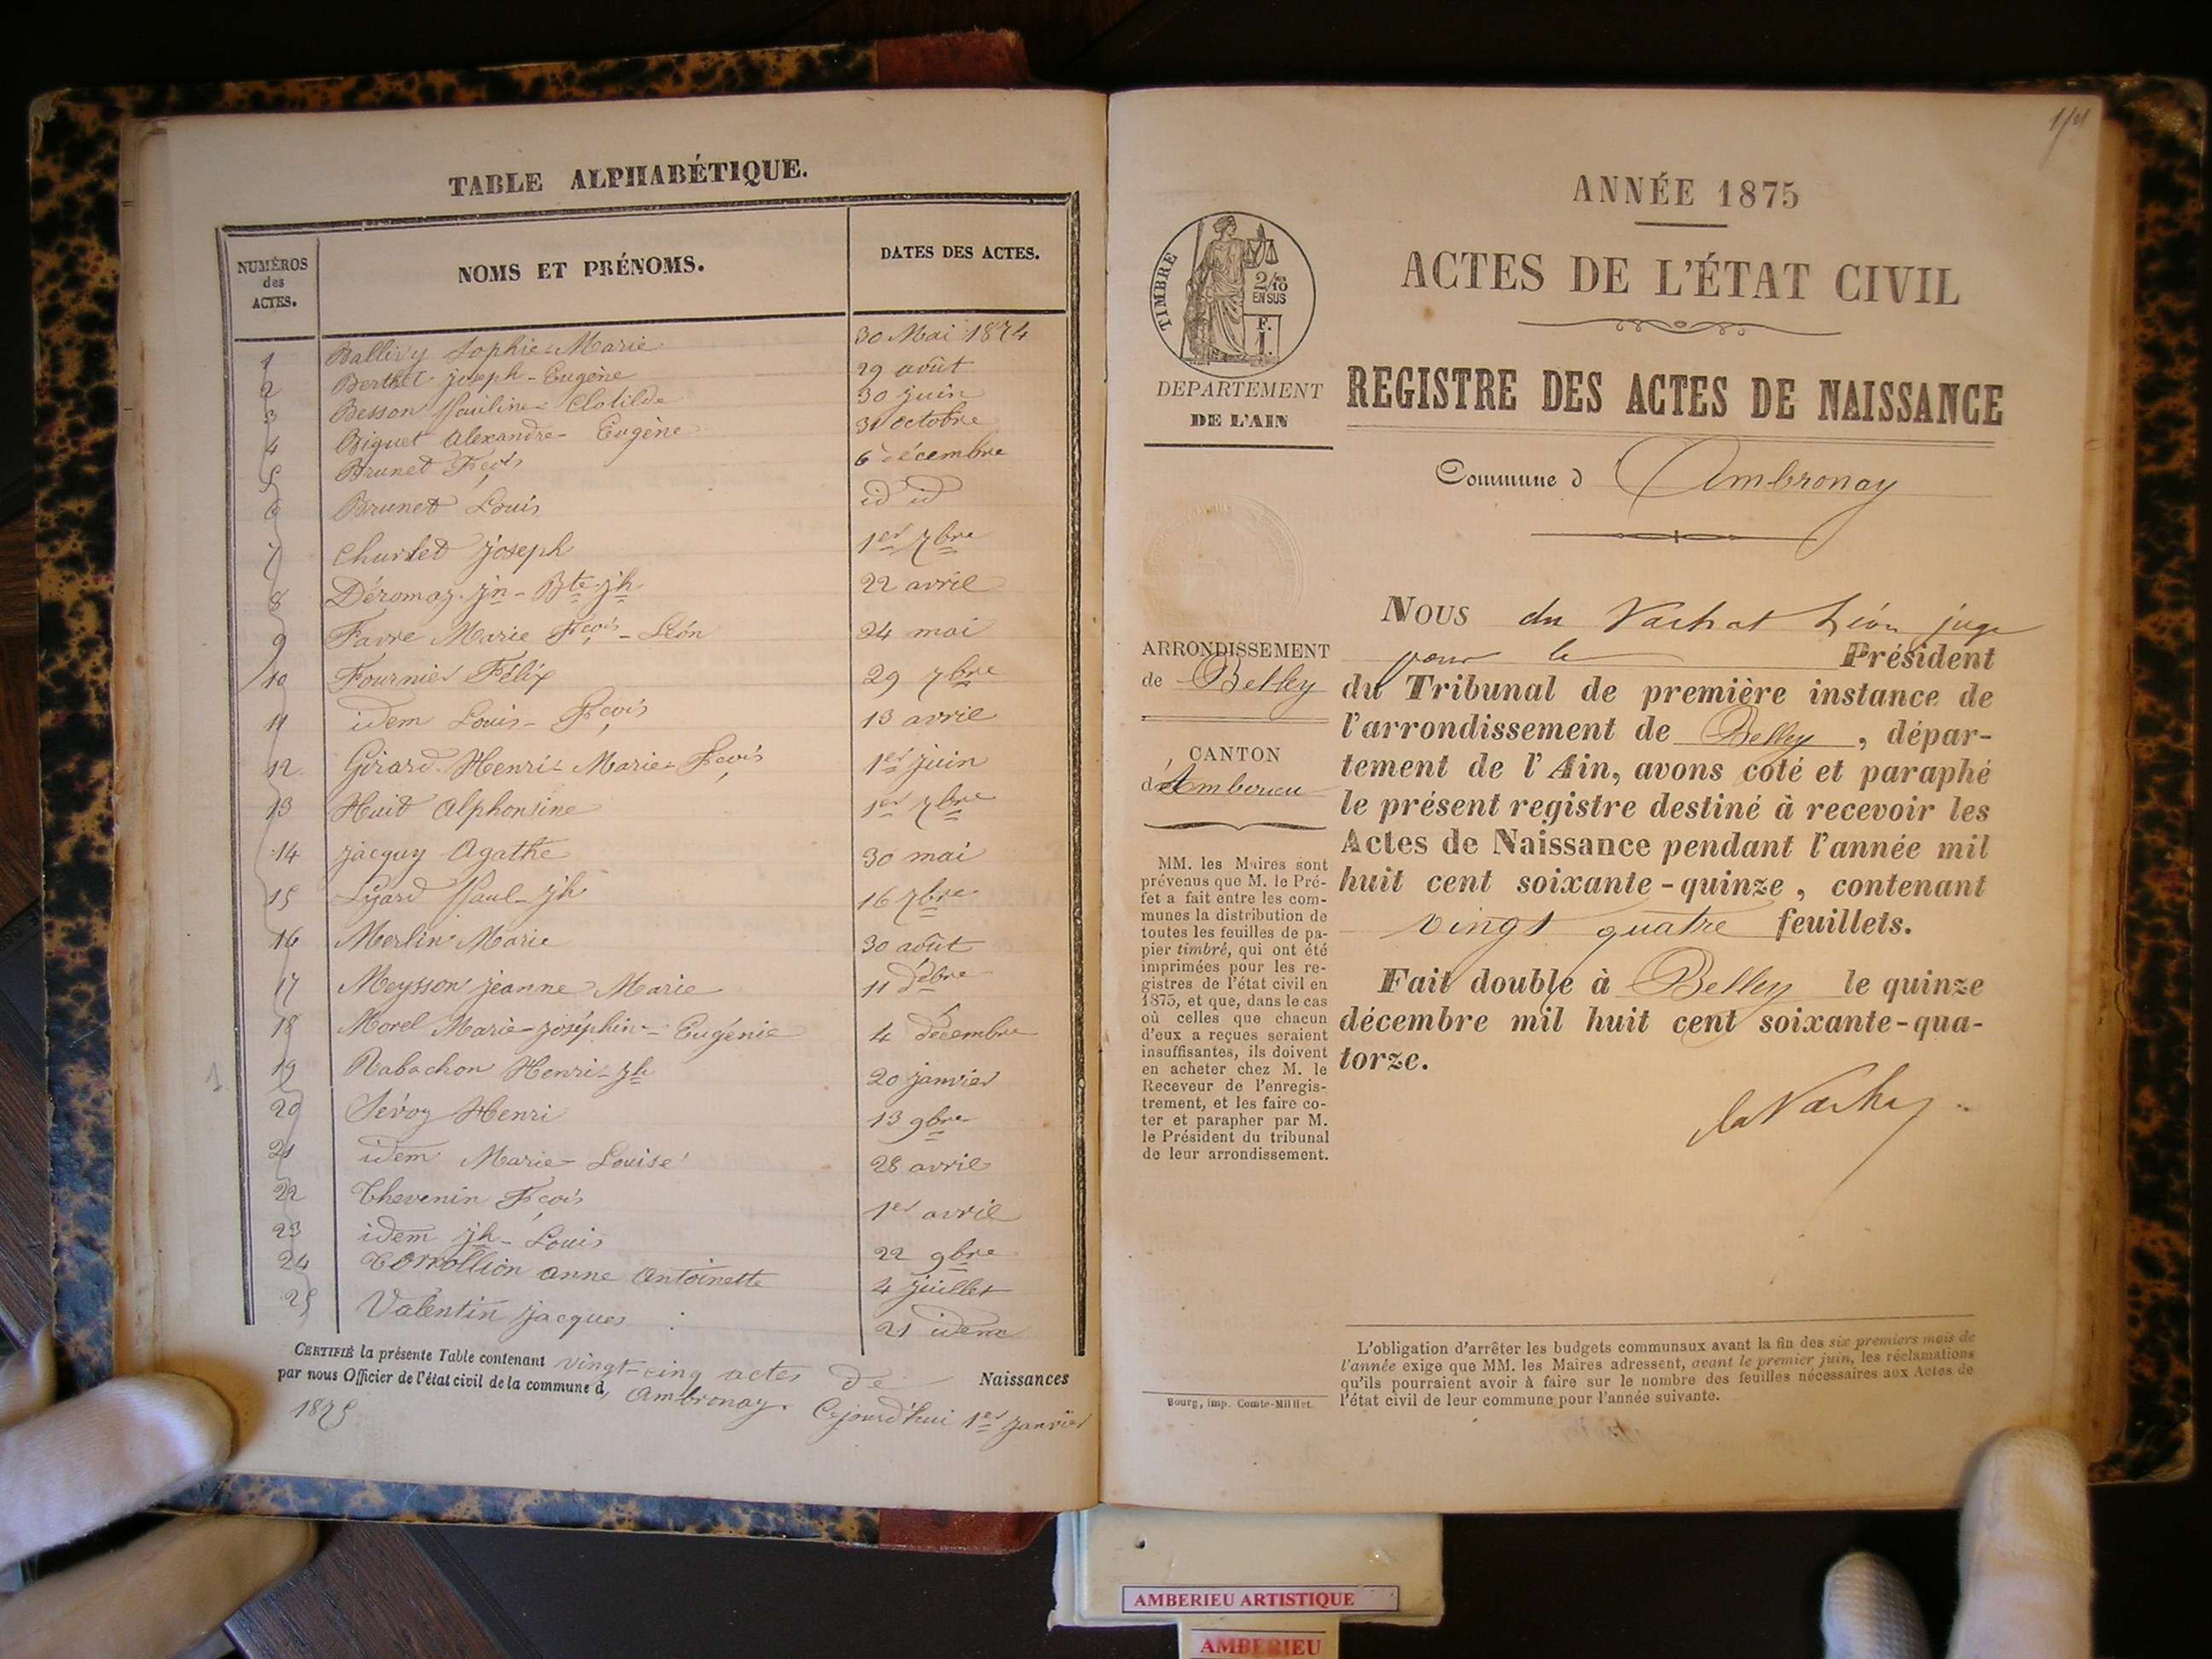 TABLE ALPHABÉTIQUE.
NUMÉROS des ACTES. NOMS ET PRÉNOMS. DATES DES ACTES.
1 Ballivy Sophie-Marie 30 Mai 1874
2 Berthet joseph-Eugène 29 août
3 Besson Pauline-Clotilde 30 juin
4 Biguet Alexandre-Eugène 31 octobre
5 Brunet Fçois 6 décembre
6 Brunet Louis id id
7 Churlet Joseph 1er 7bre
8 Déromaz jn-Bte-jh 22 avril
9 Favre Marie Fçois-Léon 24 mai
10 Fournier Félix 29 7bre
11 idem Louis-Fçois 13 avril
12 Girard Henri-Marie-Fçois 1er juin
13 Huit Alphonsine 1er 7bre
14 Jacquy Agathe 30 mai
15 Lyard Paul-jh 16 7bre
16 Merlin Marie 30 août
17 Meysson jeanne Marie 11 débre
18 Morel Marie-joséphine-Eugénie 4 décembre
19 Rabachon Henri-jh 20 janvier
20 Sévoz Henri 13 9bre
21 idem Marie-Louise 28 avril
22 Thevenin Fçois 1er avril
23 idem jh-Louis 22 9bre
24 Torrollion anne Antoinette 4 juillet
25 Valentin Jacques 21 idem
CERTIFIÉ la présente Table contenant vingt-cinq actes de Naissances
par nous Officier de l'état civil de la commune d' Ambronay. Cejourd'hui 1er Janvier
1875
ANNÉE 1875
ACTES DE L'ÉTAT CIVIL
TIMBRE
2/10
EN SUS
F.
1.
DEPARTEMENT
DE L'AIN
REGISTRE DES ACTES DE NAISSANCE
Commune d Ambronay
ARRONDISSEMENT
de Belley
CANTON
d'Amberieu
MM. les Maires sont
prévenus que M. le Pré-
fet a fait entre les com-
munes la distribution de
toutes les feuilles de pa-
pier timbré, qui ont été
imprimées pour les re-
gistres de l'état civil en
1875, et que, dans le cas
où celles que chacun
d'eux a reçues seraient
insuffisantes, ils doivent
en acheter chez M. le
Receveur de l'enregis-
trement, et les faire co-
ter et parapher par M.
le Président du tribunal
de leur arrondissement.
NOUS du Vachat Léon juge
pour le Président
du Tribunal de première instance de
l'arrondissement de Belley, dépar-
tement de l'Ain, avons coté et paraphé
le présent registre destiné à recevoir les
Actes de Naissance pendant l'année mil
huit cent soixante-quinze, contenant
vingt quatre feuillets.
Fait double à Belley le quinze
décembre mil huit cent soixante-qua-
torze.
L'obligation d'arrêter les budgets communaux avant la fin des six premiers mois de
l'année exige que MM. les Maires adressent, avant le premier juin, les réclamations
qu'ils pourraient avoir à faire sur le nombre des feuilles nécessaires aux Actes de
l'état civil de leur commune pour l'année suivante.
Bourg, imp. Comte-Milliet.
AMBERIEU ARTISTIQUE
AMBERIEU